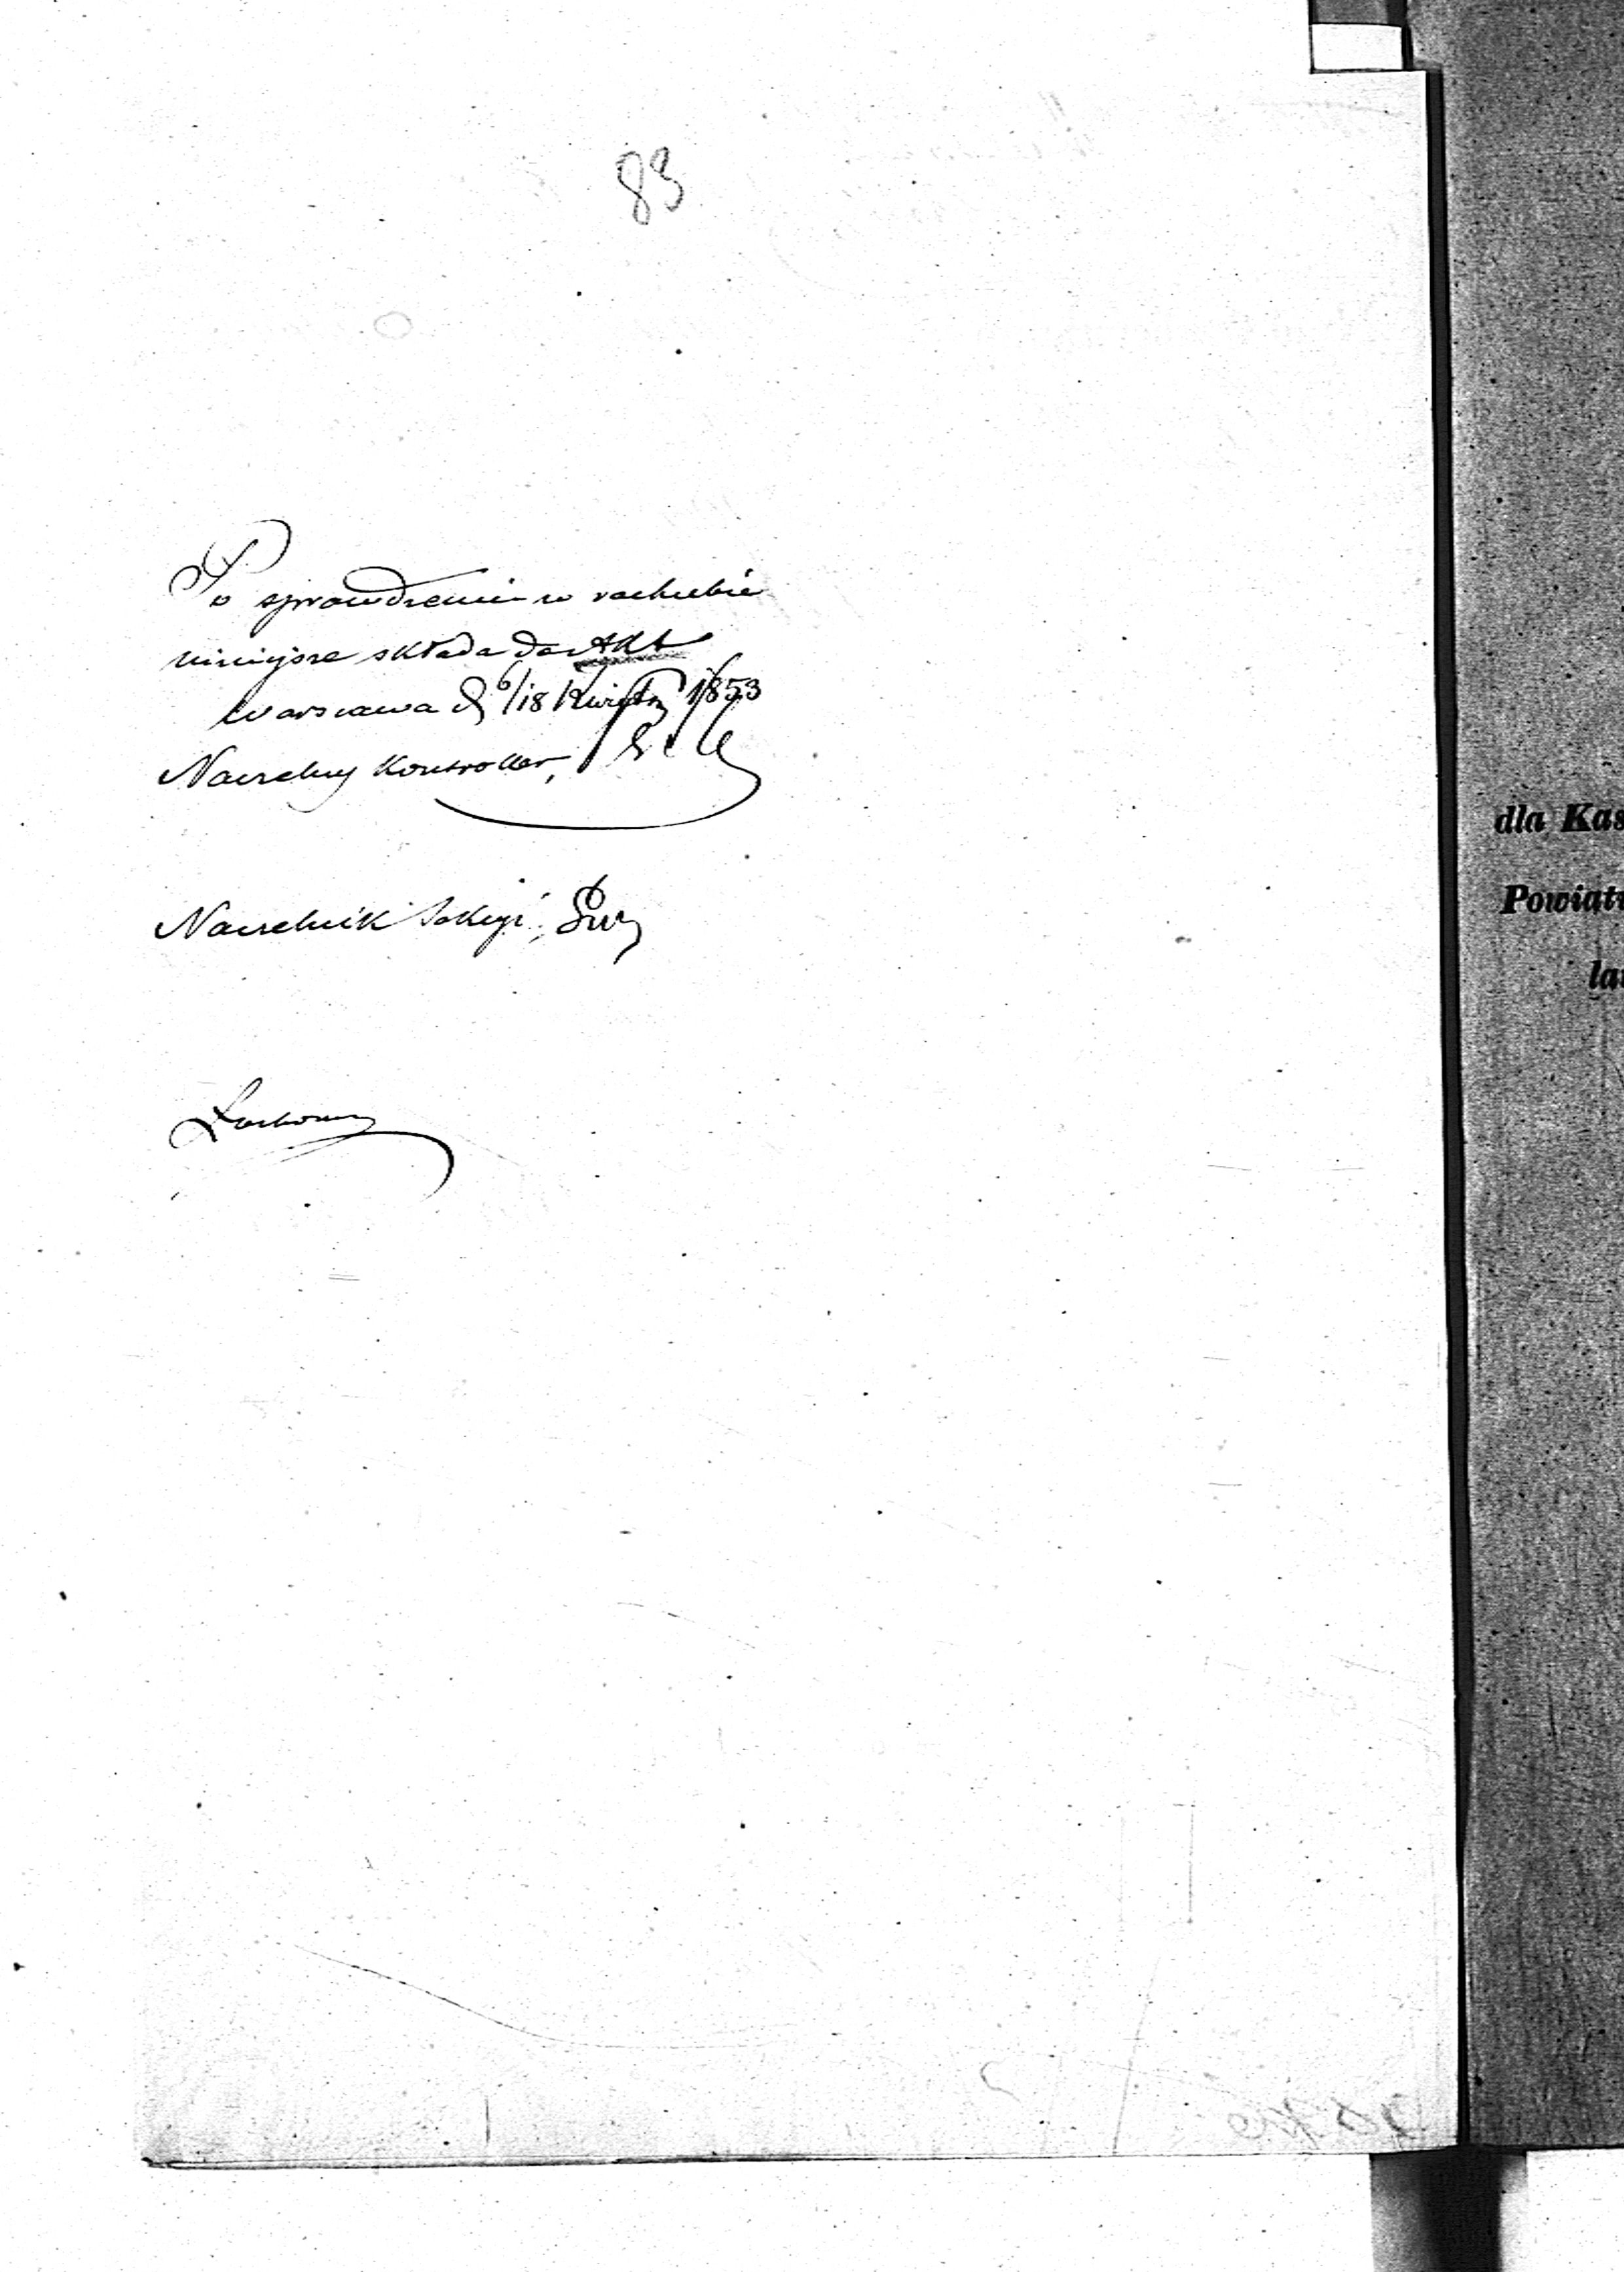 83
Po sprawdzeniu w rachubie
niniejsze składa do Akt
Warszawa d 6/18 Kwietn 1853
Naczelny Kontroller,
Naczelnik Sekcyi,
dla Kas
Powiatu